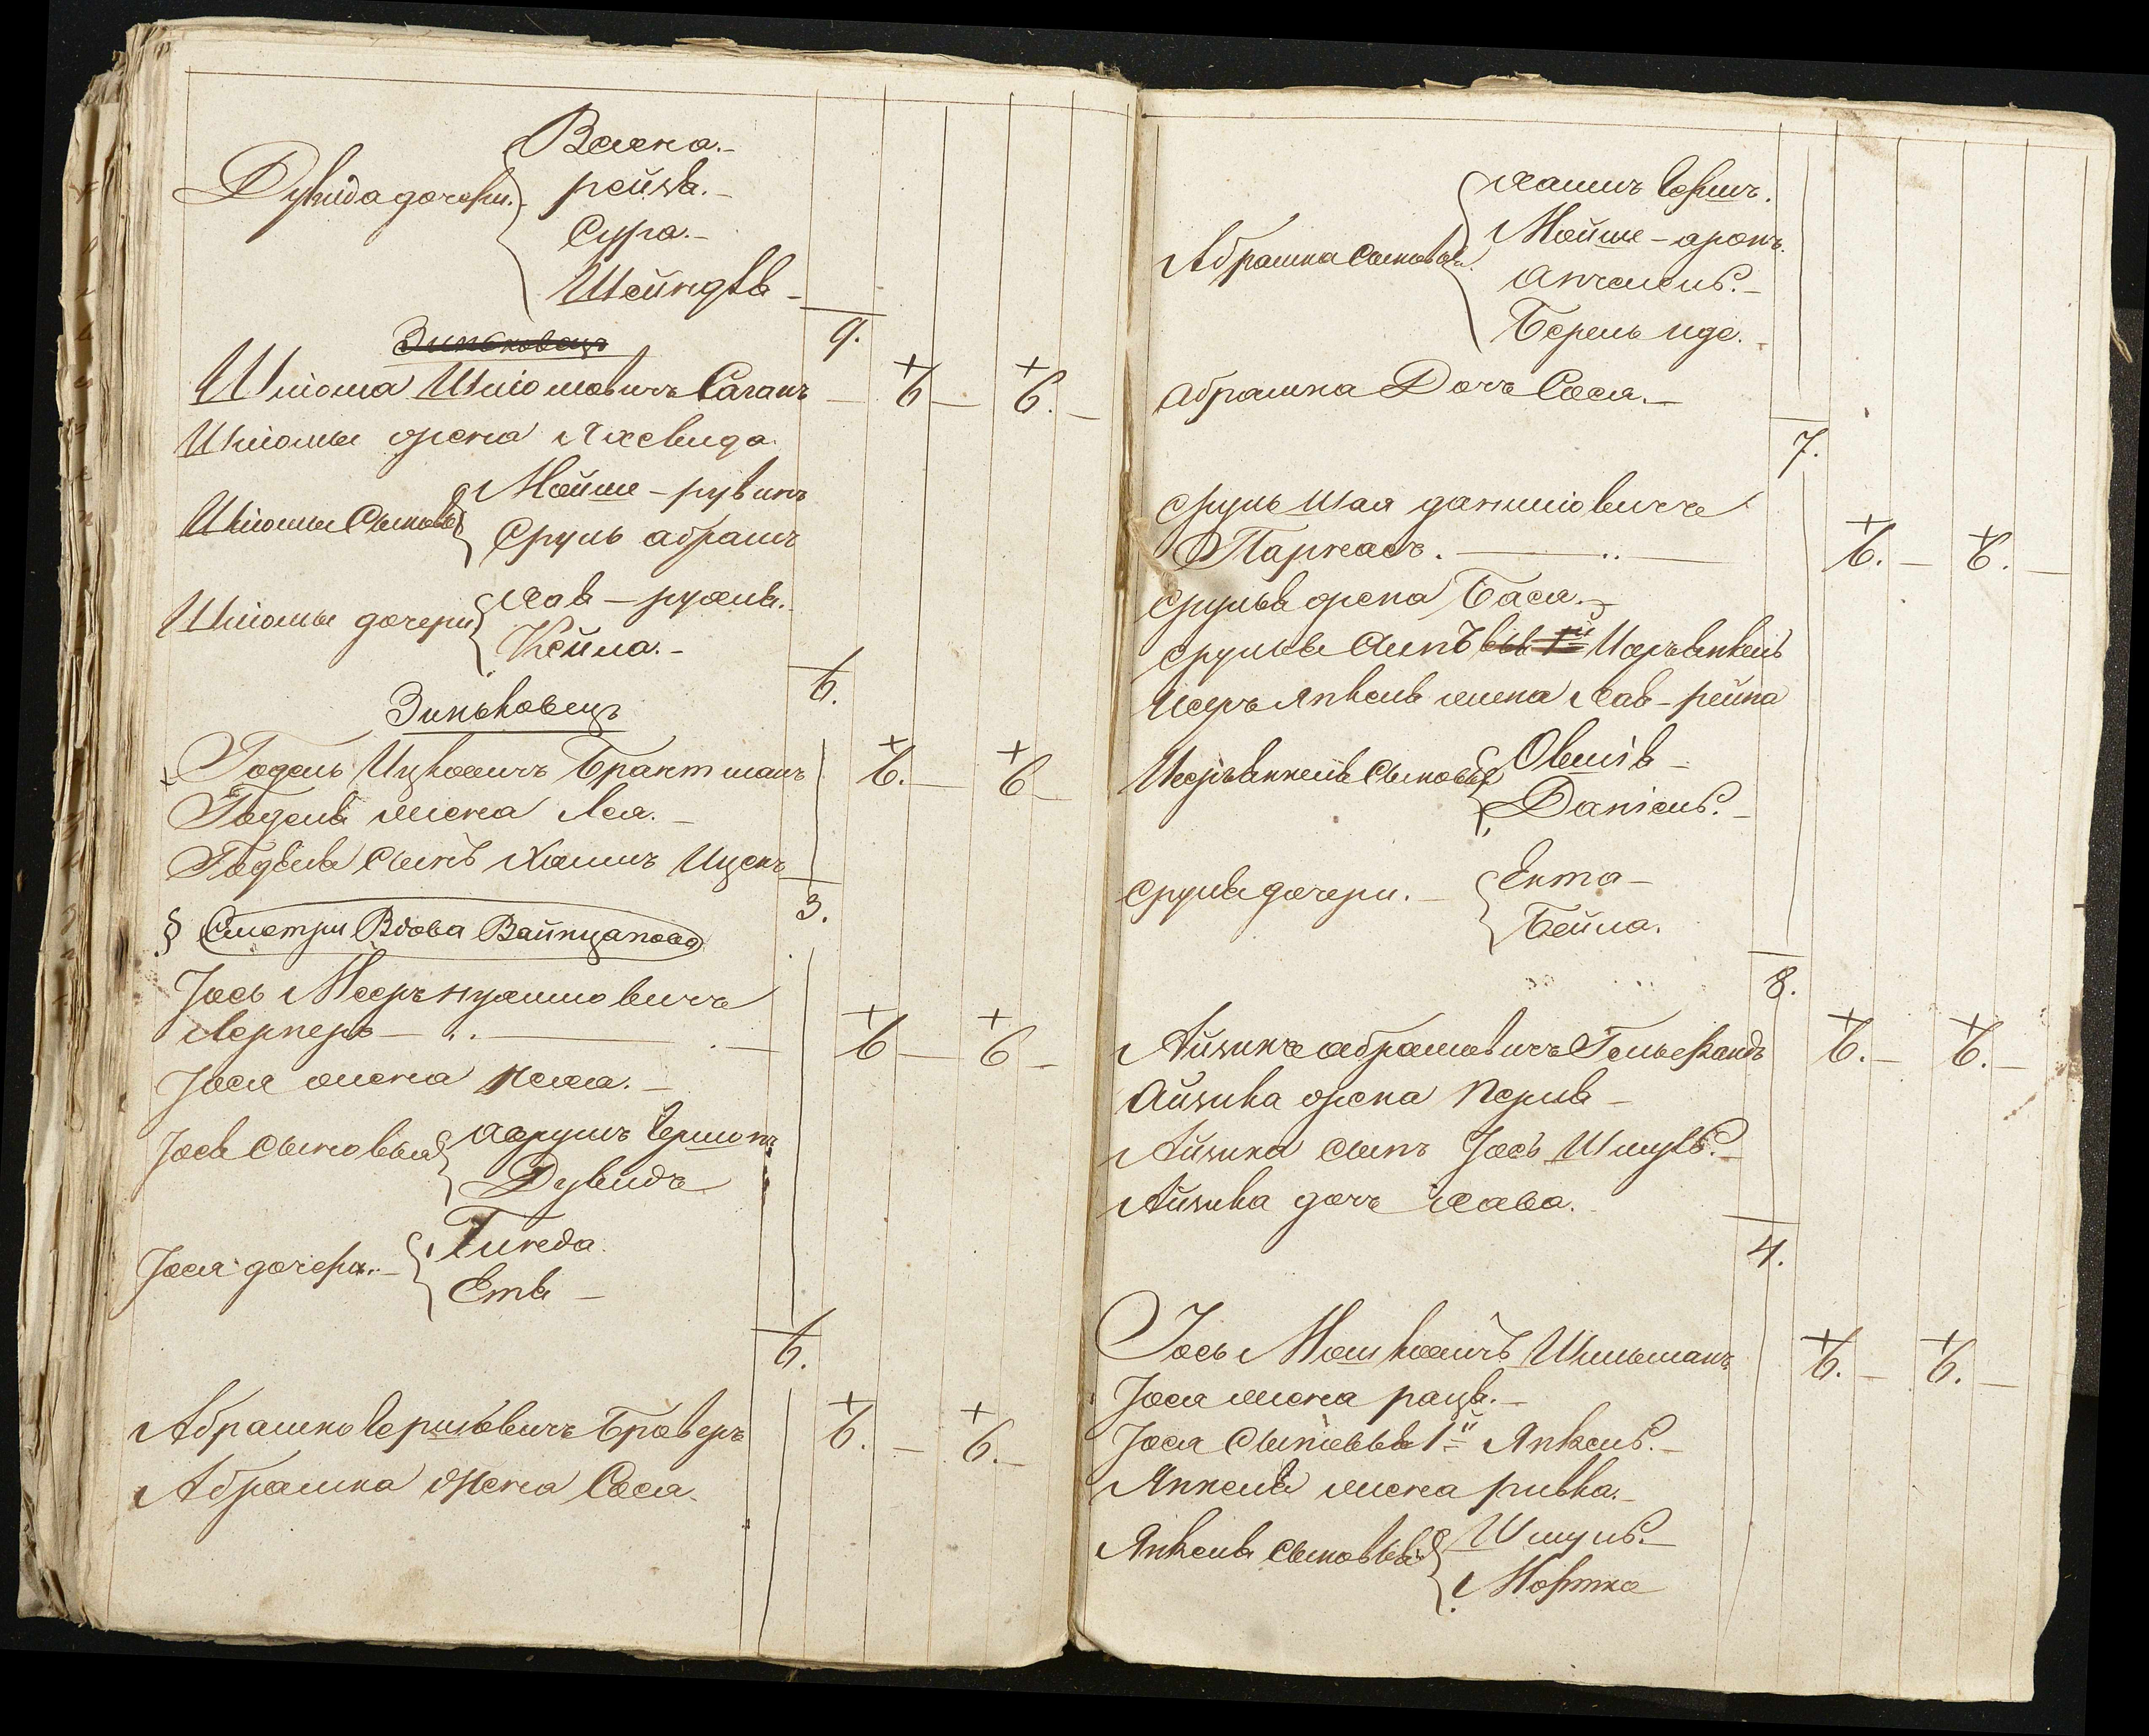 Дувида дочери.
Васка.-
рейзя.-
Сура.-
Шейндля -
9.
Зиньковецъ
Шлiома Шлiомовичъ Саганъ — б — б. —
Шлiомы жена Яхевида.
Шлiомы Сыновья
Мойше - рувинъ
Сруль абрамъ
Шлiомы дочери
Хав - рухля.
Кейла.-
6.
Зиньковецъ
Годель Ицковичъ Брантманъ б. — б —
Годеля жена Лея. -
Годеля Сынъ Хаимъ Ицекъ
3.
§ Смотри Вдова Вайнцапова
Iось Меер
Лернеръ — . . — . — б — б —
Iося жена -
Iося Сыновья
Дувидъ
Iося дочери. -
Гинеда.
Етя -
6.
Абрашко Гершковичъ Броверъ б. — б. —
Абрашка жена Сося.
Абрашка Сыновья.
Хаимъ Гершъ.
Мойше - аронъ.
Анчель. -
Берель иде. -
абрашка Дочь Сося. —
7.
Сруль Шая данилiовичъ
Парнасъ. — . . — б. — б. —
Сруля жена Бася. -
Сруля Сынъ 1й Исеръ Янкель
Исеръ Янкеля жена Хав - рейка
Исеръ Янкеля Сыновья
Овшiя -
Данiель. -
Сруля дочери. -
Ента -
Бейла.
8.
Айзикъ абрамовичъ б. — б. —
Айзика жена Перля -
Айзика сынъ Iосъ Шмуль. -
Айзика дочь Хава.
4.
Iось Мошковичъ Шильманъ. б. — б. —
Iося жена раця. -
Iося Сыновья 1й Янкель. -
Янкеля жена ривка. -
Янкеля Сыновья
Шмуль. -
Мортко